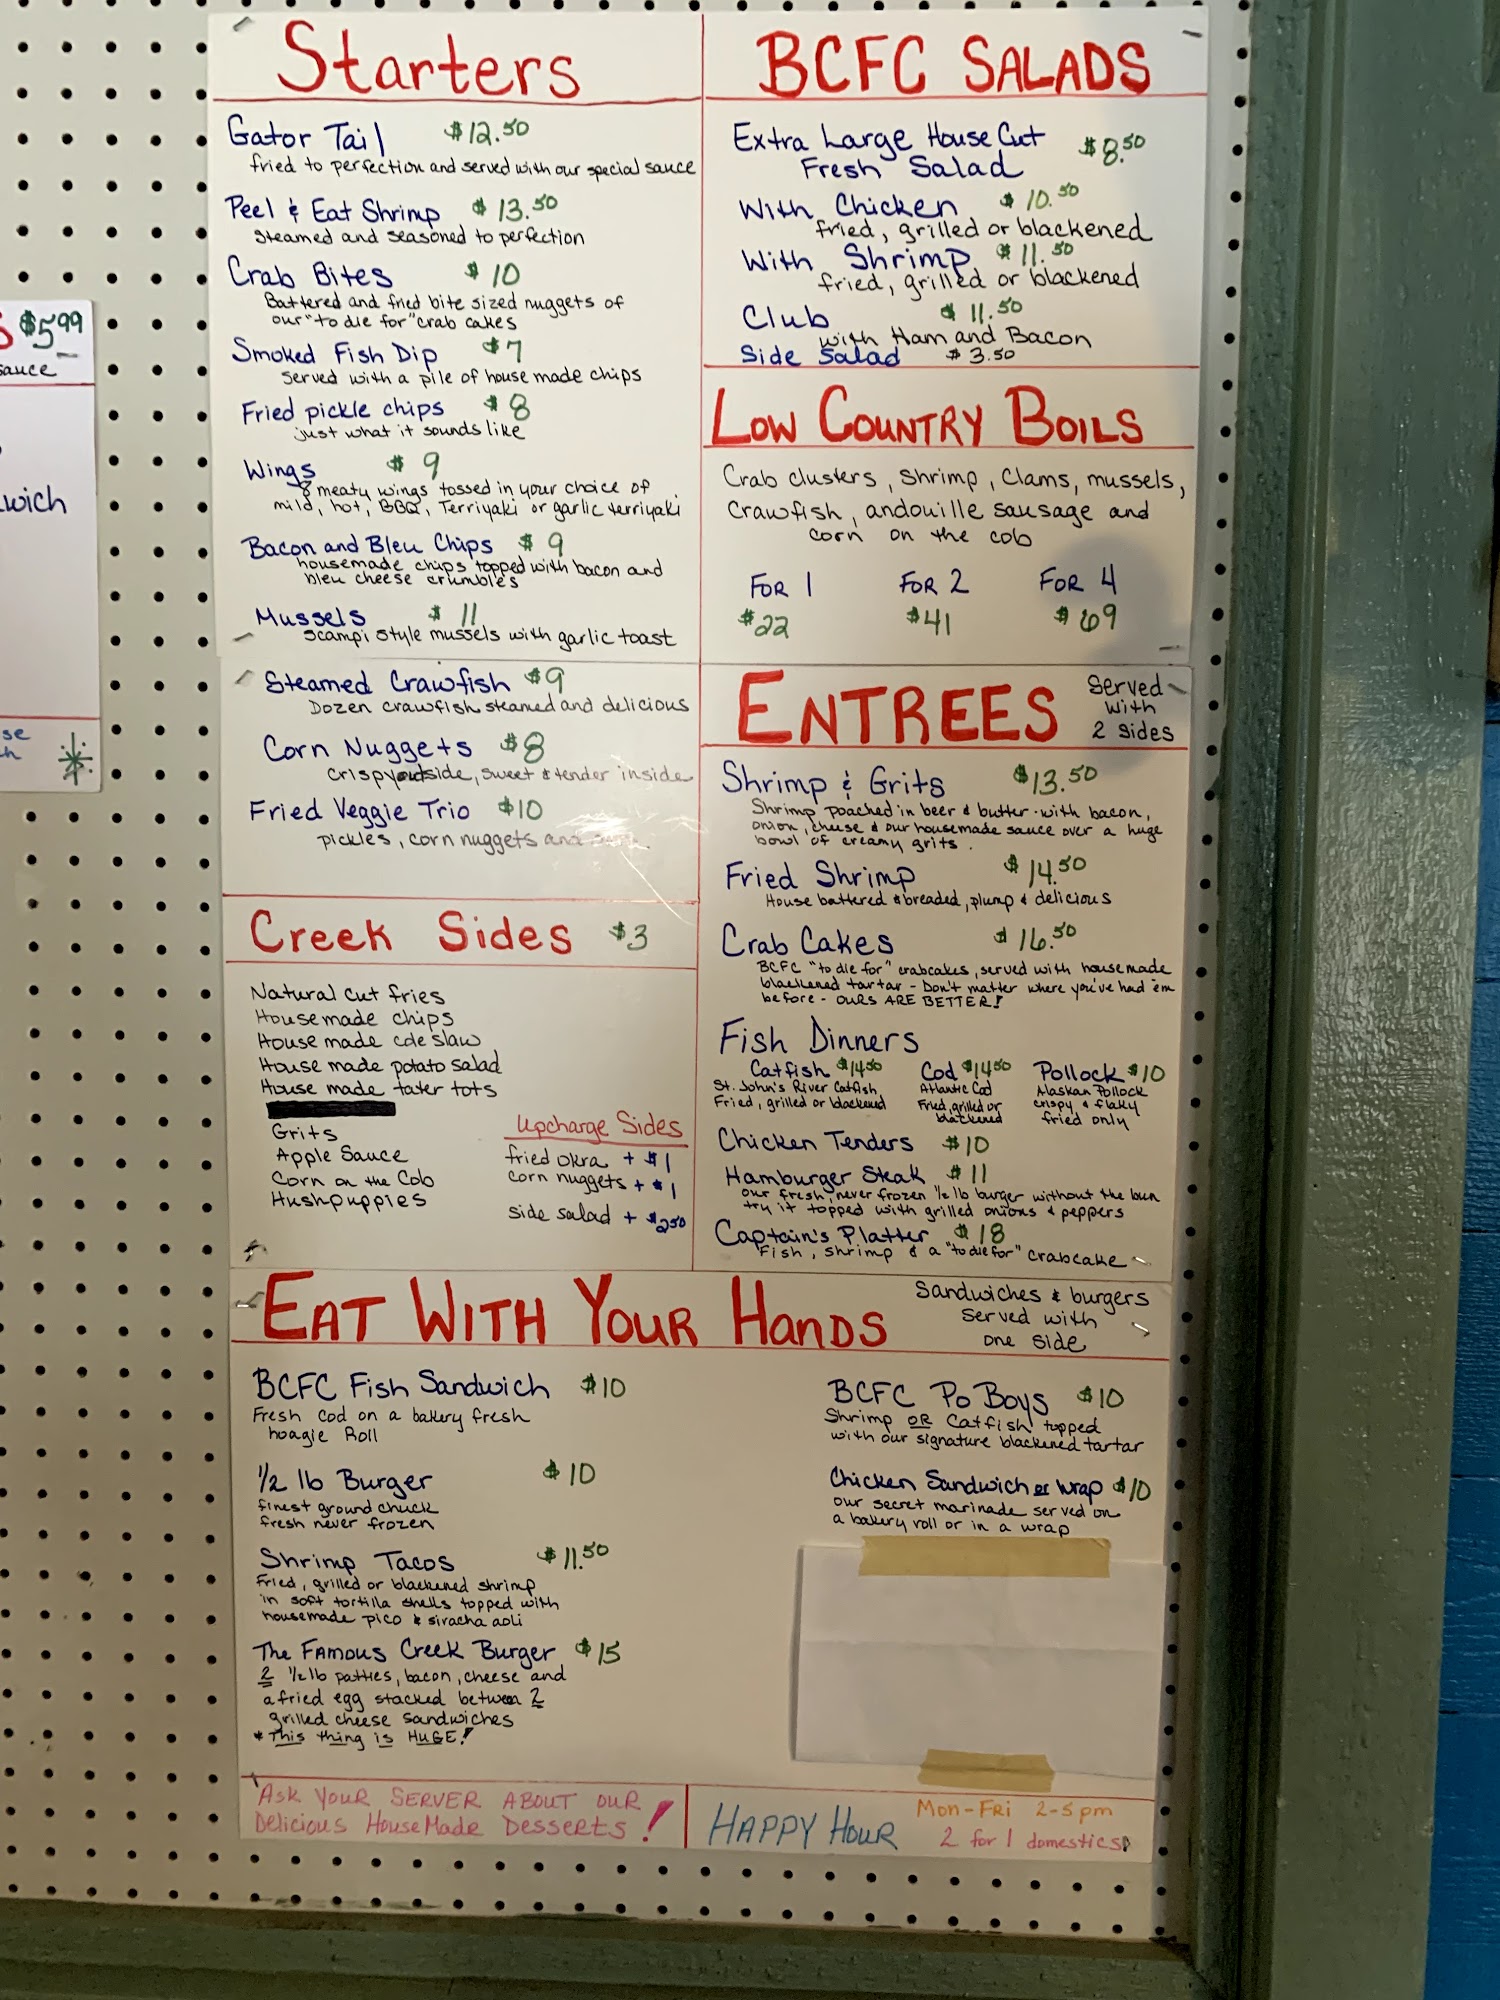 Starters
Gator Tail $12.50
fried to perfection and served with our special sauce
Peel & Eat Shrimp $13.50
Steamed and seasoned to perfection
Crab Bites $10
Battered and fried bite sized nuggets of
our "to die for" crab cakes
Smoked Fish Dip $7
Served with a pile of house made chips
Fried pickle chips $8
just what it sounds like
Wings $9
8 meaty wings tossed in your choice of
mild, hot, BBQ, Terriyaki or garlic terriyaki
Bacon and Bleu Chips $9
housemade chips topped with bacon and
bleu cheese crumbles
Mussels $11
scampi style mussels with garlic toast
Steamed Crawfish $9
Dozen crawfish steamed and delicious
Corn Nuggets $8
crispy outside, sweet & tender inside
Fried Veggie Trio $10
pickles, corn nuggets and
Creek Sides $3
Natural cut fries
Housemade chips
House made coleslaw
House made potato salad
House made tater tots
Grits
Apple Sauce
Corn on the Cob
Hushpuppies
Upcharge Sides
fried okra + $1
corn nuggets + $1
side salad + $2.50
BCFC SALADS
Extra Large House Cut $8.50
Fresh Salad
With Chicken $10.50
fried, grilled or blackened
With Shrimp $11.50
fried, grilled or blackened
Club $11.50
with Ham and Bacon
Side Salad $3.50
LOW COUNTRY BOILS
Crab clusters, Shrimp, Clams, mussels,
Crawfish, andouille sausage and
corn on the cob
FOR 1 FOR 2 FOR 4
$22 $41 $69
ENTREES
Served
with
2 sides
Shrimp & Grits $13.50
Shrimp poached in beer & butter - with bacon,
onion, cheese & our housemade sauce over a huge
bowl of creamy grits.
Fried Shrimp $14.50
House battered & breaded, plump & delicious
Crab Cakes $16.50
BCFC "to die for" crabcakes, served with housemade
blackened tartar - Don't matter where you've had 'em
before - OURS ARE BETTER!
Fish Dinners
Catfish $14.50 Cod $14.50 Pollock $10
St. John's River Catfish Atlantic Cod Alaskan Pollock
Fried, grilled or blackened Fried, grilled or crispy & flaky
blackened fried only
Chicken Tenders $10
Hamburger Steak $11
our fresh, never frozen 1/2 lb burger without the bun
try it topped with grilled onions & peppers
Captain's Platter $18
Fish, shrimp & a "to die for" crabcake
EAT WITH YOUR HANDS
Sandwiches & burgers
served with
one side
BCFC Fish Sandwich $10
Fresh Cod on a bakery fresh
hoagie Roll
1/2 lb Burger $10
finest ground chuck
fresh never frozen
Shrimp Tacos $11.50
Fried, grilled or blackened shrimp
in soft tortilla shells topped with
housemade pico & siracha aoli
The Famous Creek Burger $15
2 1/2 lb patties, bacon, cheese and
a fried egg stacked between 2
grilled cheese sandwiches
* This thing is HUGE!
BCFC Po Boys $10
Shrimp OR Catfish topped
with our signature blackened tartar
Chicken Sandwich or wrap $10
our secret marinade served on
a bakery roll or in a wrap
ASK YOUR SERVER ABOUT OUR
Delicious HouseMade Desserts!
HAPPY HOUR
Mon-Fri 2-5 pm
2 for 1 domestics!
$5.99
sauce